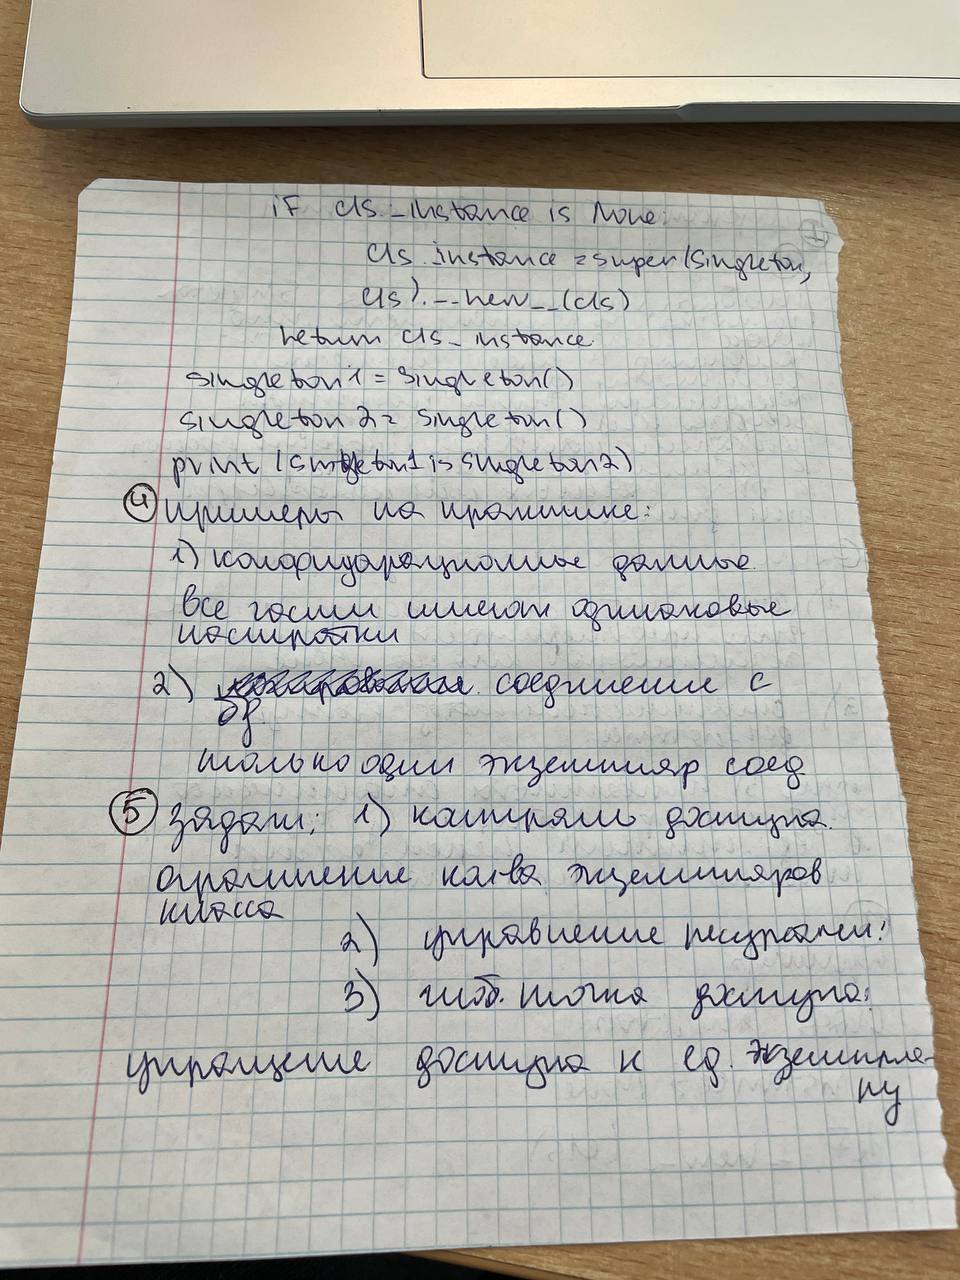 if cls._instance is None:
cls.instance = super(Singleton,
cls).__new__(cls)
return cls_instance
singleton1 = Singleton()
singleton2 = Singleton()
print (singleton1 is singleton2)
4 Примеры на практике:
1) конфигурационные данные
все части имеют одинаковые
настройки
2) соединение с
бд
только один экземпляр соед
5 Задачи: 1) контроль доступа.
ограничение кол-ва экземпляров
класса
2) управление ресурсами:
3) глоб. точка доступа:
упрощение доступа к ед. экземпля-
ру